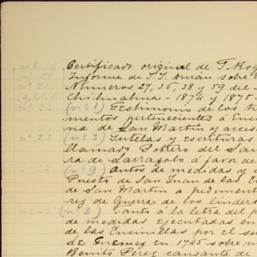 Certificado original de T. Rog
Informe de T. I. Durán sobre
Números 27, 36, 38 y 39 del
Chihuahua - 1874 y 1875
(nº 1) Testimonio de los tí
mentos pertenecientes á
na de San Martin y acces
(nº 3) Tutelas y escrituras
llamado Potrero del Sau
ra de Larrazolo á favor de
(nº 9) Autos de medidas y
Puesto de San Juan de las En
de San Martin a pedimento
rez de Guerra de los linder
(nº 2) tanto á la letra del
de medidas Ejecutadas en
de las Encinillas por el
de Guemez en 1745 sobre
Benito Pérez causante de